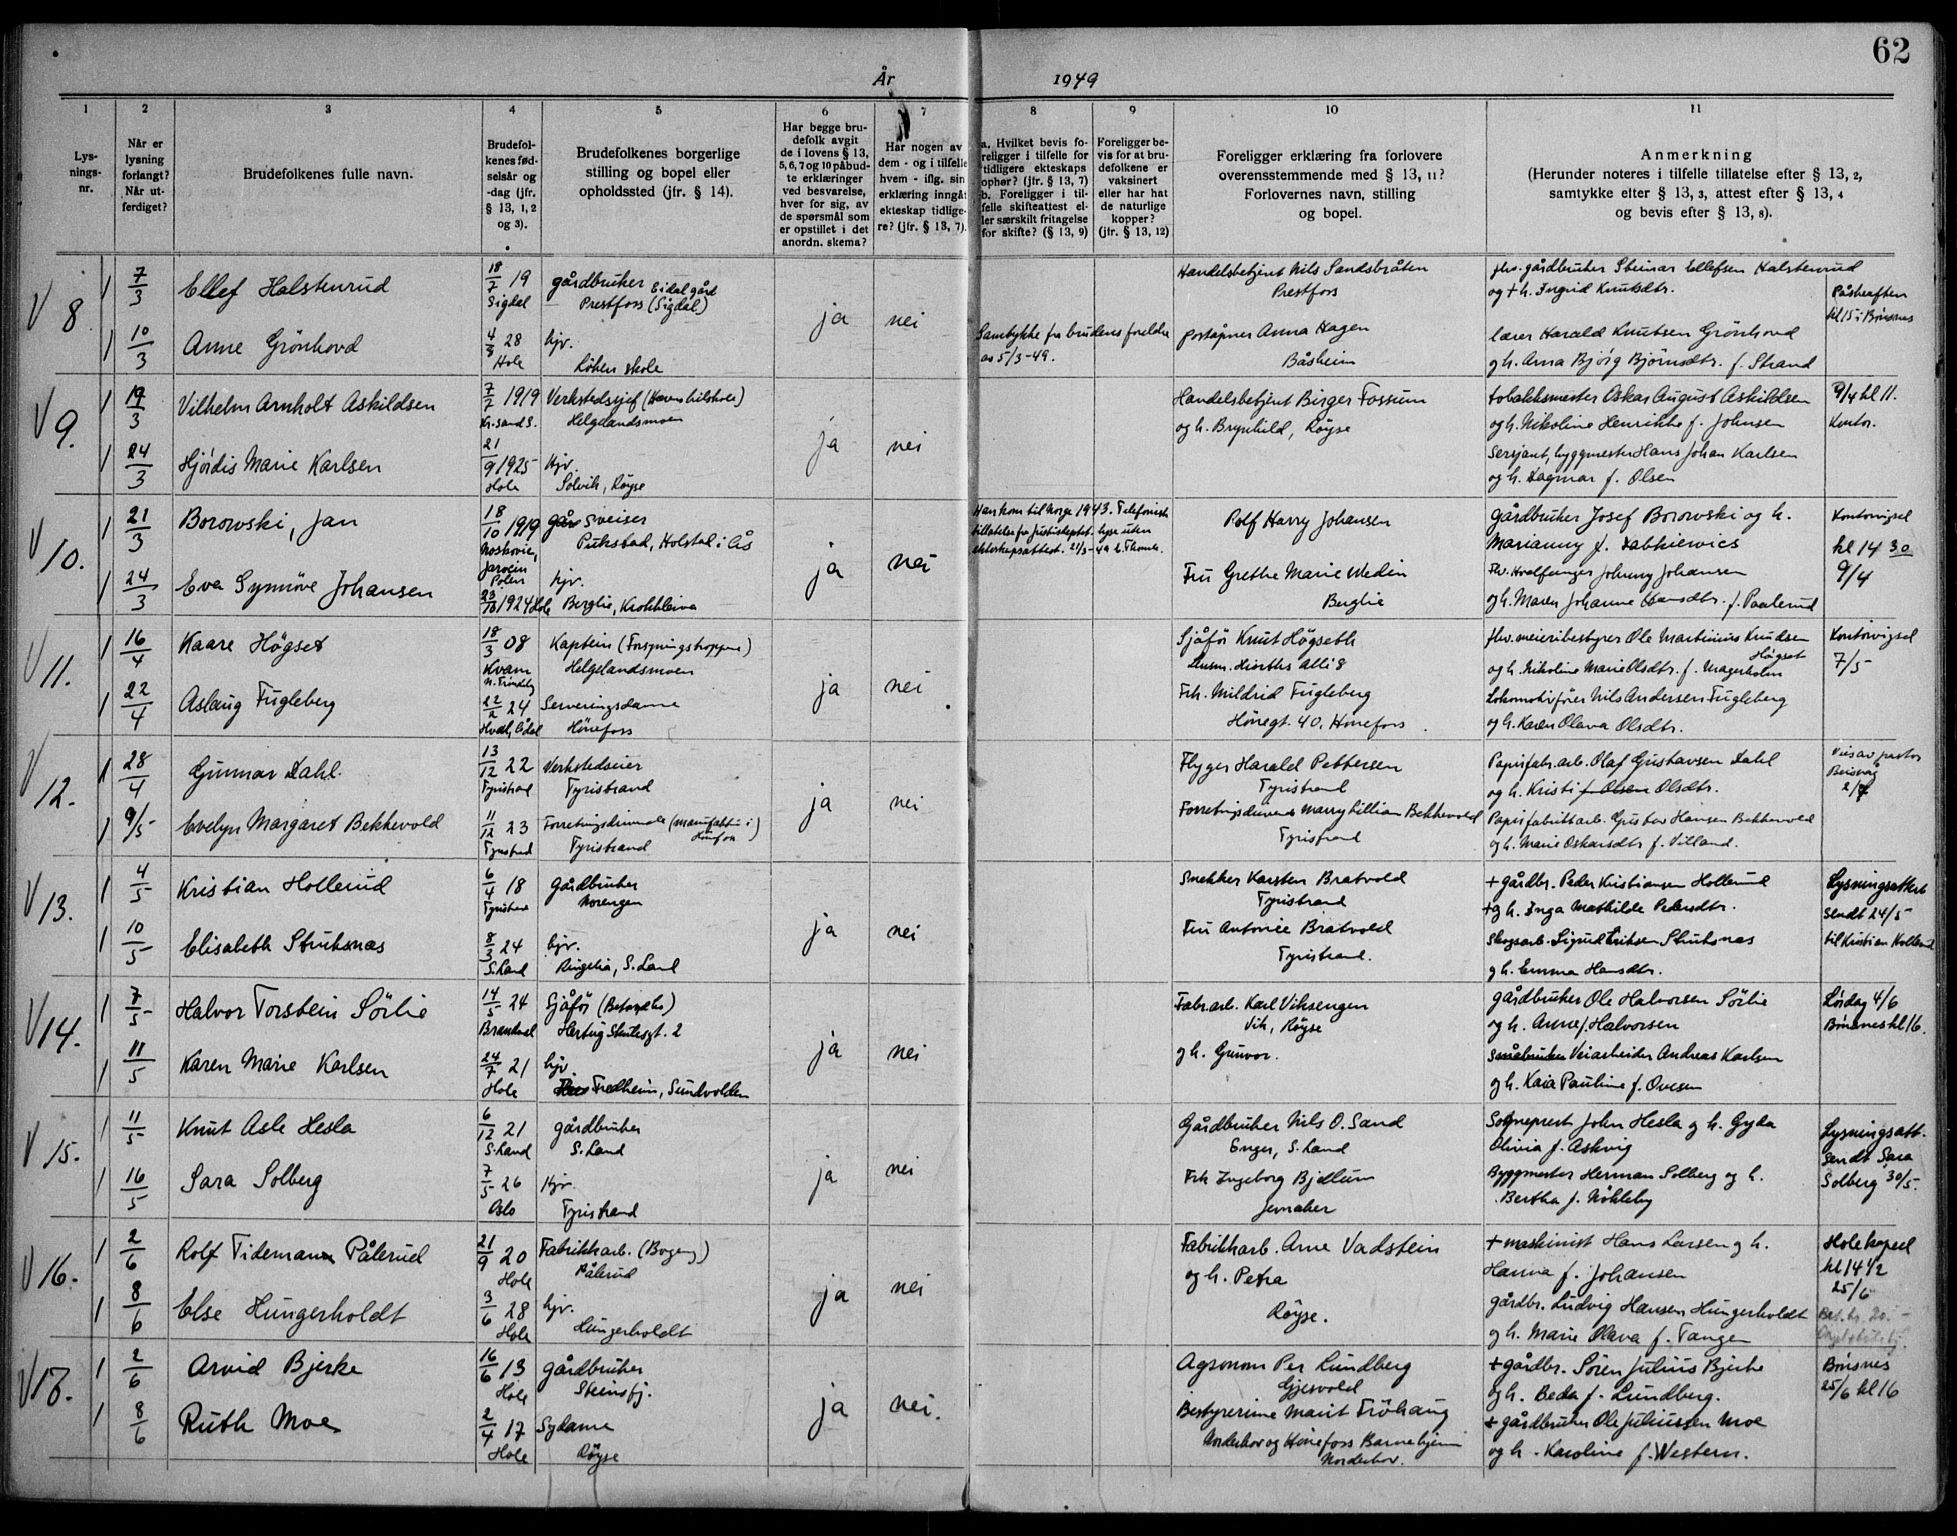 62
År 1949
1
Lys-
nings-
nr.
2
Når er
lysning
forlangt?
Når ut-
ferdiget?
3
Brudefolkenes fulle navn.
4
Brudefol-
kenes fød-
selsår og
-dag (jfr.
§ 13, 1, 2
og 3).
5
Brudefolkenes borgerlige
stilling og bopel eller
opholdssted (jfr. § 14).
6
Har begge bru-
defolk avgit
de i lovens § 13,
5, 6, 7 og 10 påbud-
te erklæringer
ved besvarelse,
hver for sig, av
de spørsmål som
er opstillet i det
anordn. skema?
7
Har nogen av
dem - og i tilfelle
hvem - iflg. sin
erklæring inngåt
ekteskap tidlige-
re? (jfr. § 13, 7).
8
a. Hvilket bevis fo-
religger i tilfelle for
tidligere ekteskaps
ophør? (jfr. § 13, 7)
b. Foreligger i til-
felle skifteattest el-
ler særskilt fritagelse
for skifte? (§ 13, 9)
9
Foreligger be-
vis for at bru-
defolkene er
vaksinert
eller har hat
de naturlige
kopper?
(jfr. § 13, 12)
10
Foreligger erklæring fra forlovere
overensstemmende med § 13, 11?
Forlovernes navn, stilling
og bopel.
11
Anmerkning
(Herunder noteres i tilfelle tillatelse efter § 13, 2,
samtykke efter § 13, 3, attest efter § 13, 4
og bevis efter § 13, 8).
V 8
7/3
Ellef Halstenrud
18/7 19
Sigdal
gårdbruker Eidal gård
Prestfoss (Sigdal)
ja
nei
Handelsbetjent Nils Sandsbråten
Prestfoss
fhv. gårdbruker Steinar Ellefsen Halstenrud
og + h. Ingrid Knutsdtr.
Påskeaften
kl 15 i Bønsnes
10/3
Anne Grönhovd
4/3 28
Hole
hjv.
skole
Samtykke fra brudens foreldre
av 5/3-49.
poståpner Anna Hagen
Båsheim
lærer Harald Knutsen Grönhovd
og h. Anna Bjørg Bjørnsdtr. f. Strand
V 9.
19/3
Vilhelm Arnholt Askildsen
7/7 1919
Kr.sand S.
Verkstedsjef (Hærens bilskole)
Helgelandsmoen
ja
nei
Handelsbetjent Birger Fossum
og h. Brynhild, Røyse
tobakksmester Oskar August Askildsen
og h. Nikoline Henrikke f. Johnsen
9/4 kl 11.
Kontor.
24/3
Hjördis Marie Karlsen
21/9 1925
Hole
hjv.
Solvik, Røyse
Sersjant, byggmester Hans Johan Karlsen
og h. Dagmar f. Olsen
V 10.
21/3
Borowski, Jan
18/10 1919
Jarocin
Polen
Sveiser
Pukstad, Holstad i Ås
ja
nei
Han kom til Norge 1943. Telefonisk
tillatelse fra Justisdeptet. lyse uten
ekteskapsattest. 21/3-49
Rolf Harry Johansen
gårdbruker Josef Borowski og h.
Marianny f. Dabkiewics
Kontorvigsel
kl 14 30
9/4
24/3
Eva Synnöve Johansen
23/10 1924 Hole
hjv.
Berglie, Krokkleiva
Fru Grethe Marie Medin
Berglie
Fhv. Hvalfanger Johnny Johansen
og h. Maren Johanne Hansdtr. f. Paalerud
V 11.
16/4
Kaare Högset
18/3 08
Kvam
N. Trøndelag
Kaptein (Forsyningstroppene)
Helgelandsmoen
ja
nei
Sjåfør Knut Högseth
fhv. meieribestyrer Ole Martinius Knudsen
Högset
og h. Nikoline Marie Olsdtr. f. Magerholm
Kontorvigsel
7/5
22/4
Aslaug Fugleberg
22/2 24
Hval, Ådal
Serveringsdame
Hönefoss
Frk. Mildrid Fugleberg
Hönegt. 40, Hönefoss.
Lokomotivfører Nils Andersen Fugleberg
og h. Karen Olava Olsdtr.
V 12.
28/4
Gunnar Dahl.
13/12 22
Tyristrand
Verkstedseier
Tyristrand
ja
nei
Flyger Harald Pettersen
Tyristrand
Papirfabr.arb. Olaf Gustavsen Dahl
og h. Kristi f. Olsen Olsdtr.
Vies av pastor
2/7
9/5
Evelyn Margaret Bekkevold
11/12 23
Tyristrand
Forretningsdrivende (manufaktur i
Hönefoss)
Tyristrand
Forretningsdrivende Marry Lillian Bekkevold
Tyristrand
Papirfabrikkarb. Gustav Hansen Bekkevold
og h. Marie Oskarsdtr f. Villand.
V 13.
4/5
Kristian Hollerud
6/4 18
Tyristrand
gårdbruker
Norengen
ja
nei
Snekker Karsten Bratvold
Tyristrand
+ gårdbr. Peder Kristiansen Hollerud
+ og h. Inga Mathilde Pedersdtr.
Lysningsattest
sendt 24/5
til Kristian Hollerud
10/5
Elisabeth Struksnæs
8/3 24
S. Land
hjv.
Ringelia, S. Land
Fru Antonie Bratvold
Tyristrand.
Skogsarb. Sigurd Eriksen Struksnæs
og h. Emma Hansdtr.
V 14.
7/5
Halvor Torstein Sörlie
14/5 24
Brandval
Sjåför
Hertug Skulesgt. 2
ja
nei
Fabr.arb. Karl Viksengen
Vik, Røyse
gårdbruker Ole Halvorsen Sörlie
og h. Anne f. Halvorsen
Lördag 4/6
Bönsnes kl 16.
11/5
Karen Marie Karlsen
24/7 21
Hole
hjv.
Fredheim, Sundvolden
og h. Gunvor.
Småbruker Veiarbeider Andreas Karlsen
og h. Kaia Pauline f. Ovesen
V 15.
11/5
Knut Asle Hesla
6/12 21
S. Land
gårdbruker
S. Land
ja
nei
Gårdbruker Nils O. Sand
Enger, S. Land
Sogneprest John Hesla og h. Gyda
Olivia f. Askvig
Lysningsatt.
sendt Sara
Solberg 30/5.
16/5
Sara Solberg
7/5 26
Oslo
hjv.
Tyristrand
Frk Ingeborg Bjellum
Jevnaker
Byggmester Herman Solberg og h.
Bertha f. Nökleby
V 16.
2/6
Rolf Tidemann Pålerud
21/9 20
Hole
Fabrikkarb. (Bogeng)
Pålerud
ja
nei
Fabrikkarb. Arne Vadstein
og h. Petra
Røyse.
+ maskinist Hans Larsen og h.
Hanna f. Johansen
Hole kapell
kl 14 1/2
25/6
8/6
Else Hungerholdt
3/6 28
Hole
hjv.
Hungerholdt
gårdbr. Ludvig Hansen Hungerholdt
og h. Marie Olava f. Tangen
V 17.
2/6
Arvid Bjerke
16/6 13
Hole
gårdbruker
Steinsfj.
ja
nei.
Agronom Per Lundberg
Gjesvold
+ gårdbr. Sören Julius Bjerke
og h. Beda f. Lundberg.
Bönsnes
25/6 kl 16
8/6
Ruth Moe
2/4 17
Hole
Sydame
Røyse
Bestyrerinne Marit Fröhaug
Norderhov og Hönefoss Barnehjem
Norderhov.
+ gårdbruker Ole Juliussen Moe
og h. Karoline f. Western.